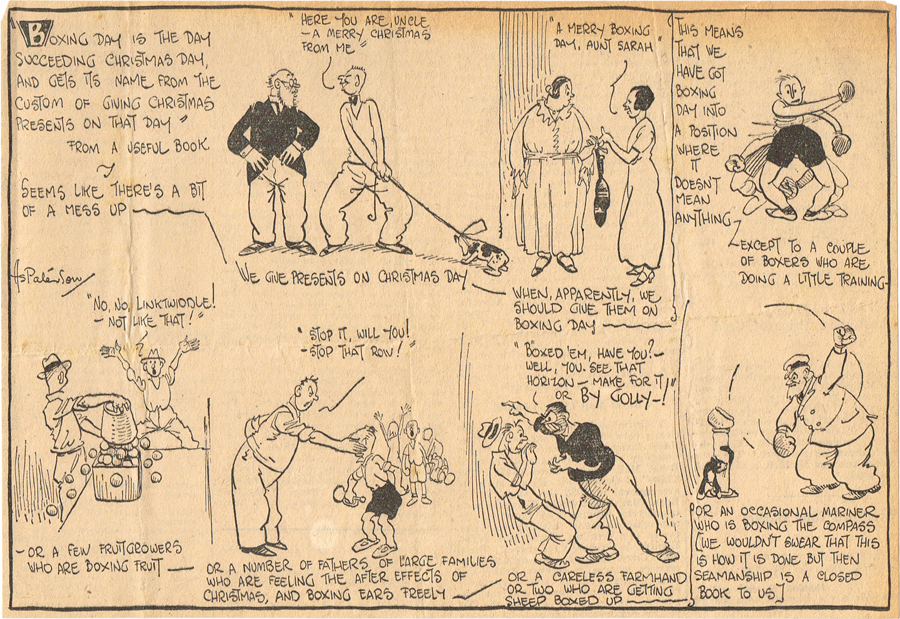 BOXING DAY IS THE DAY
SUCCEEDING CHRISTMAS DAY,
AND GETS ITS NAME FROM THE
CUSTOM OF GIVING CHRISTMAS
PRESENTS ON THAT DAY"
FROM A USEFUL BOOK
SEEMS LIKE THERE'S A BIT
OF A MESS UP
AsPaterson
"HERE YOU ARE, UNCLE
– A MERRY CHRISTMAS
FROM ME"
WE GIVE PRESENTS ON CHRISTMAS DAY
"A MERRY BOXING
DAY, AUNT SARAH"
WHEN, APPARENTLY, WE
SHOULD GIVE THEM ON
BOXING DAY
THIS MEANS
THAT WE
HAVE GOT
BOXING
DAY INTO
A POSITION
WHERE
IT
DOESN'T
MEAN
ANYTHING
EXCEPT TO A COUPLE
OF BOXERS WHO ARE
DOING A LITTLE TRAINING–
"NO, NO, LINKTWIDDLE!
– NOT LIKE THAT!"
– OR A FEW FRUITGROWERS
WHO ARE BOXING FRUIT –
"STOP IT, WILL YOU!
– STOP THAT ROW!"
OR A NUMBER OF FATHERS OF LARGE FAMILIES
WHO ARE FEELING THE AFTER EFFECTS OF
CHRISTMAS, AND BOXING EARS FREELY
"BOXED 'EM, HAVE YOU? –
WELL, YOU SEE THAT
HORIZON – MAKE FOR IT
OR BY GOLLY –!"
OR A CARELESS FARMHAND
OR TWO WHO ARE GETTING
SHEEP BOXED UP
OR AN OCCASIONAL MARINER
WHO IS BOXING THE COMPASS
(WE WOULDN'T SWEAR THAT THIS
IS HOW IT IS DONE BUT THEN
SEAMANSHIP IS A CLOSED
BOOK TO US)